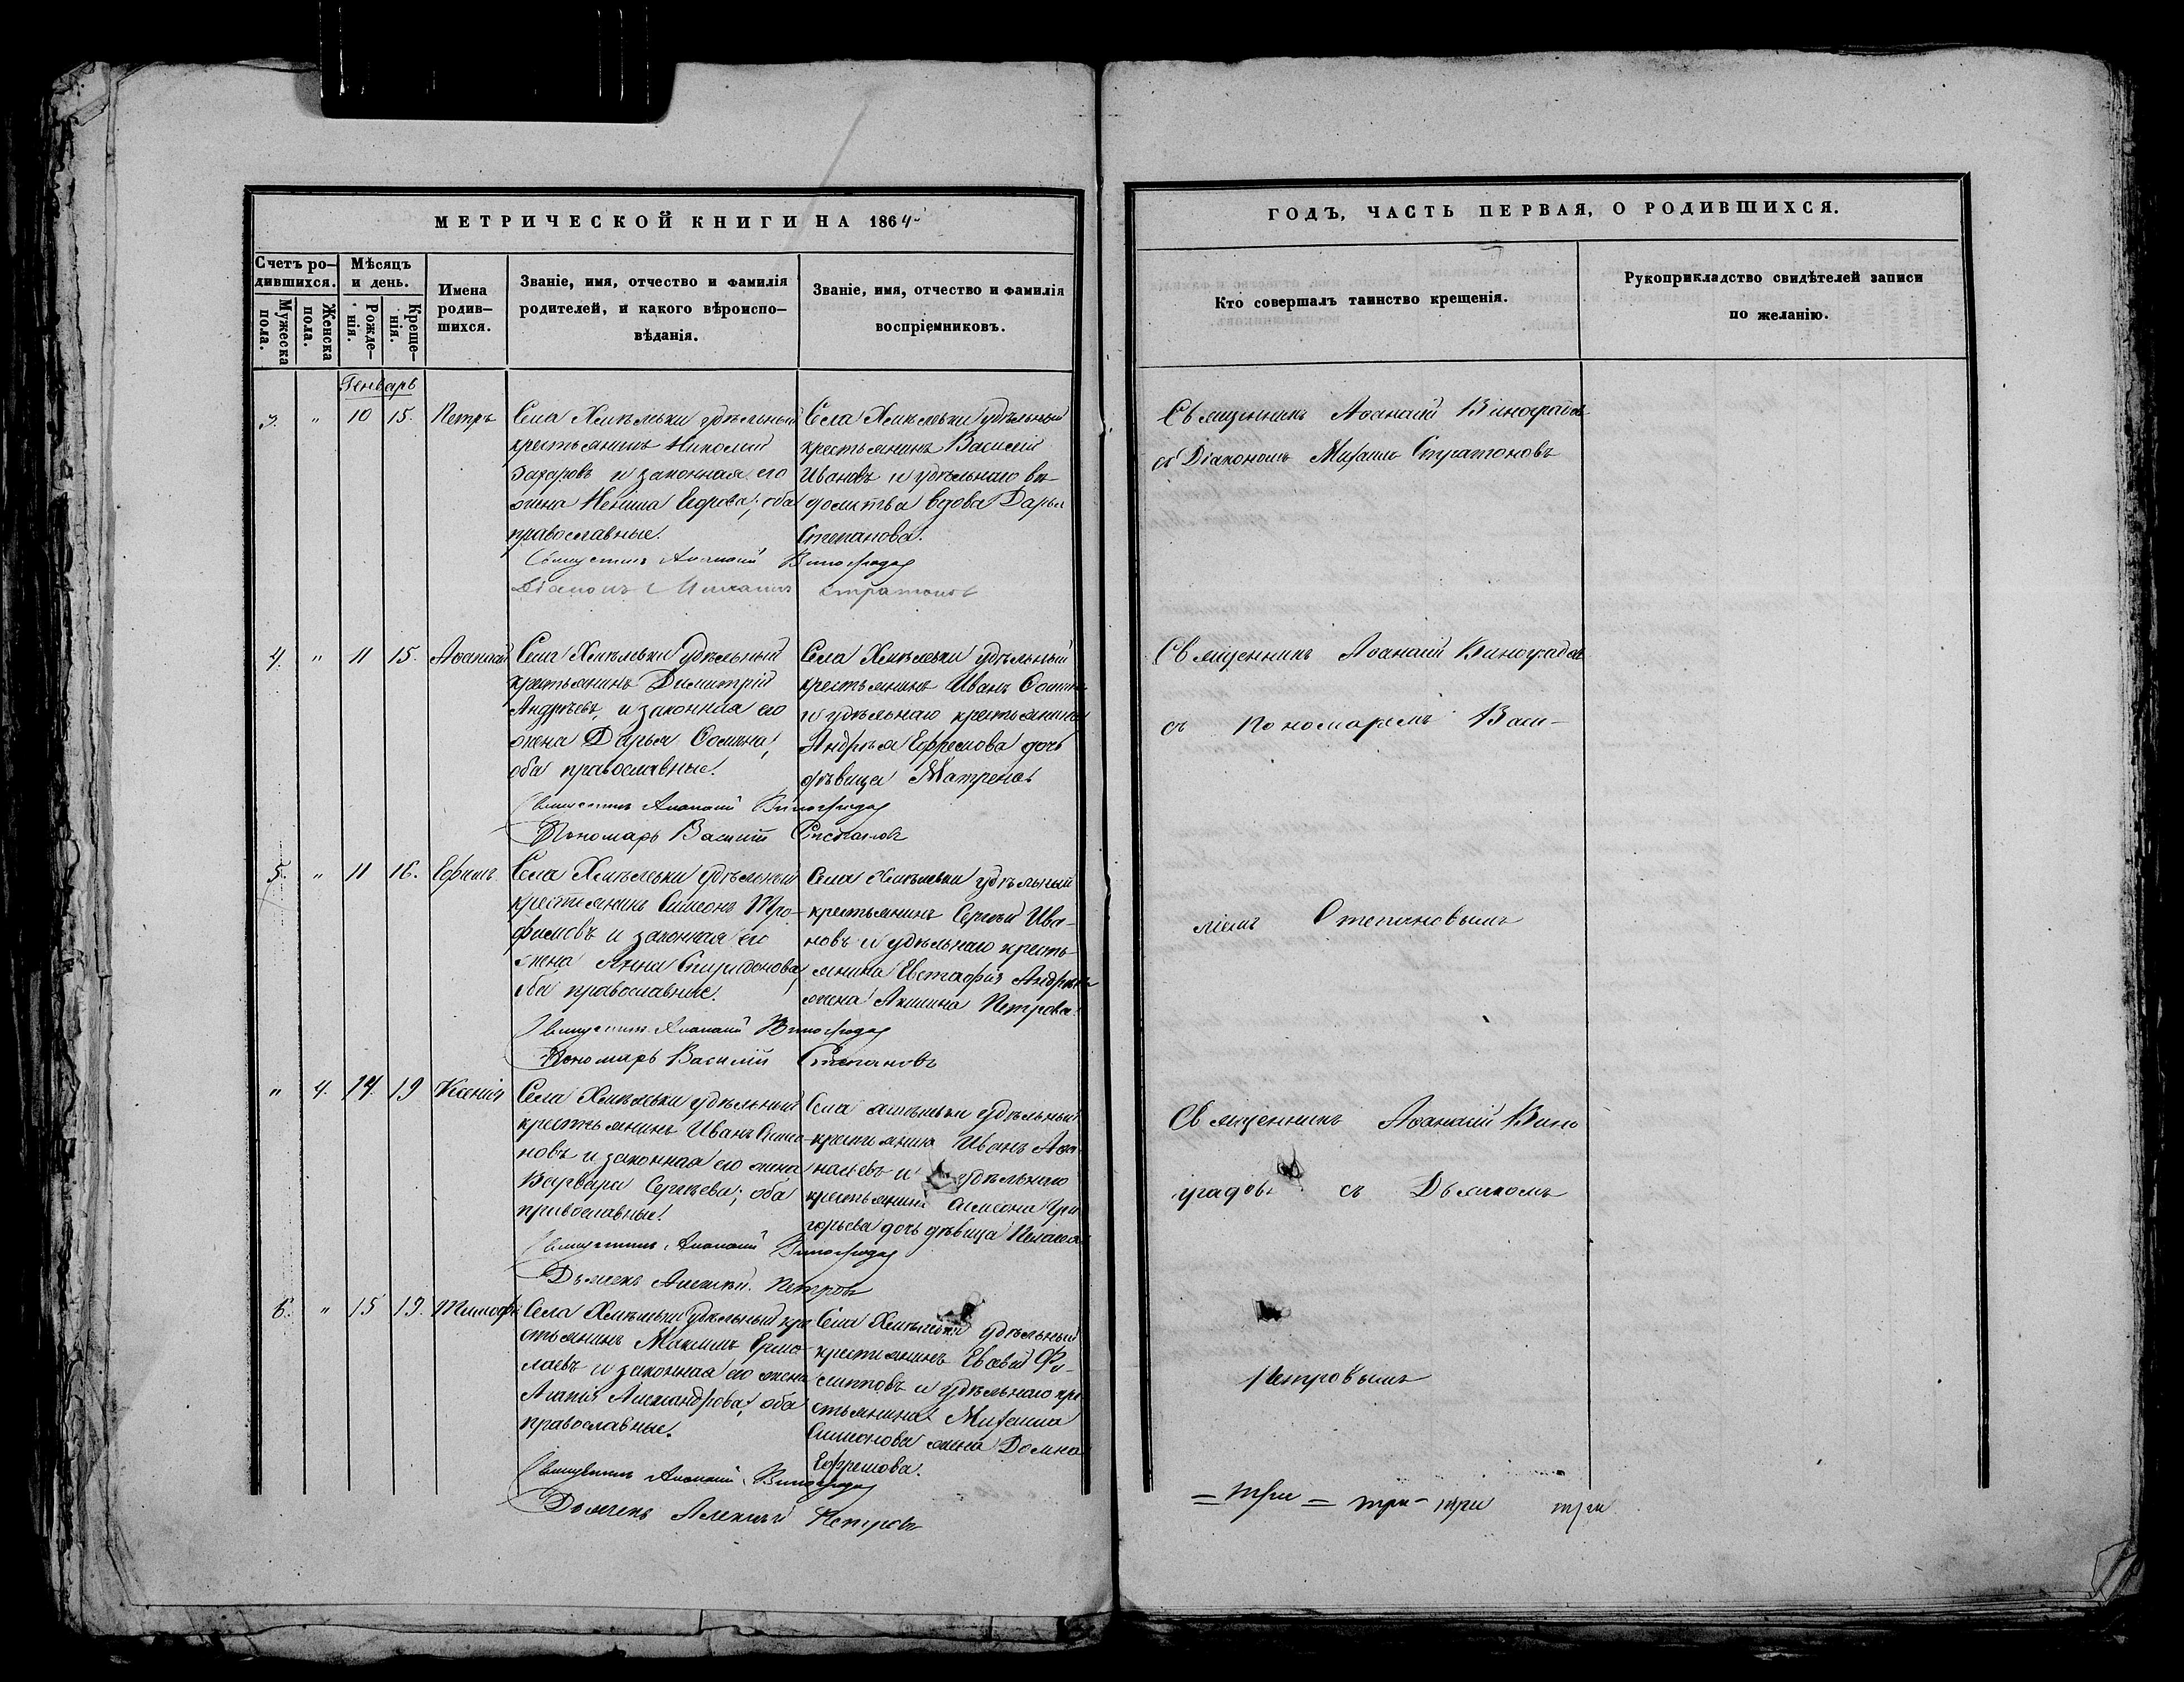 МЕТРИЧЕСКОЙ КНИГИ НА 1864
Счетъ ро-
дившихся.
Мужеска
пола.
Женска
пола.
Мѣсяцъ
и день.
Рожде-
нія.
Креще-
нія.
Имена
родив-
шихся.
Званіе, имя, отчество и фамилія
родителей, и какого вѣроиспо-
вѣданія.
Званіе, имя, отчество и фамилія
воспріемниковъ.
Генварь
3. " 10 15. Петръ
Села Хмѣлевки удѣльный
крестьянинъ Николай
Захаровъ и законная его
жена Ксенія; оба
православные.
Села Хмѣлевки удѣльный
крестьянинъ Василій
Ивановъ и удѣльнаго ве-
домства вдова Дарья
Степанова.
Священникъ Аѳанасій Виноградов
Діаконъ Михаилъ Стратонов
4. " 11 15. Аѳанасій
Села Хмѣлевки удѣльный
крестьянинъ Димитрій
Андреевъ, и законная его
жена Дарья Осипова,
оба православные.
Села Хмѣлевки удѣльный
крестьянинъ Иванъ
и удѣльнаго крестьянина
Андрея Ефремова дочь
дѣвица Матрена
Священникъ Аѳанасій Виноградов
Пономарь Василій Степановъ
5. " 11 16. Ефимъ
Села Хмѣлевки удѣльный
крестьянинъ Симеонъ Тро-
фимовъ и законная его
жена Анна Спиридонова,
оба православные.
Села Хмѣлевки удѣльный
крестьянинъ Сергѣй Ива-
новъ и удѣльнаго кресть-
янина Евстафія Андреева
жена Акилина Петрова.
Священникъ Аѳанасій Виноградов
Пономарь Василій Степановъ
" 4. 14. 19 Ксенія
Села Хмѣлевки удѣльный
крестьянинъ Иванъ Степа-
новъ и законная его жена
Варвара Сергѣева; оба
православные.
Села удѣльный
крестьянинъ Иванъ Аѳа-
насьевъ и удѣльнаго
крестьянина Симеона Гри-
горьева дочь дѣвица Пелагея
Священникъ Аѳанасій Виноградов
Дьячекъ Алексѣй Петровъ
6. " 15 19. Тимоѳей
Села Хмѣлевки удѣльный кре-
стьянинъ Максимъ Ермо-
лаевъ и законная его жена
Агапія Александрова, оба
православные.
Села Хмѣлевки удѣльный
крестьянинъ Евсевій Фи-
липповъ и удѣльнаго кре-
стьянина Михаила
Симеонова жена Домна
Ефремова.
Священникъ Аѳанасій Виноградов
Дьячекъ Алексѣй Петровъ
ГОДЪ, ЧАСТЬ ПЕРВАЯ, О РОДИВШИХСЯ.
Кто совершалъ таинство крещенія.
Рукоприкладство свидѣтелей записи
по желанію.
Священникъ Аѳанасій Виноградов
съ Діакономъ Михаилъ Стратоновъ
Священникъ Аѳанасій Виноградов
съ Пономаремъ Васи-
ліемъ Степановымъ
Священникъ Аѳанасій Вино
градовъ съ Дьячкомъ
Петровымъ
= три = три - три три